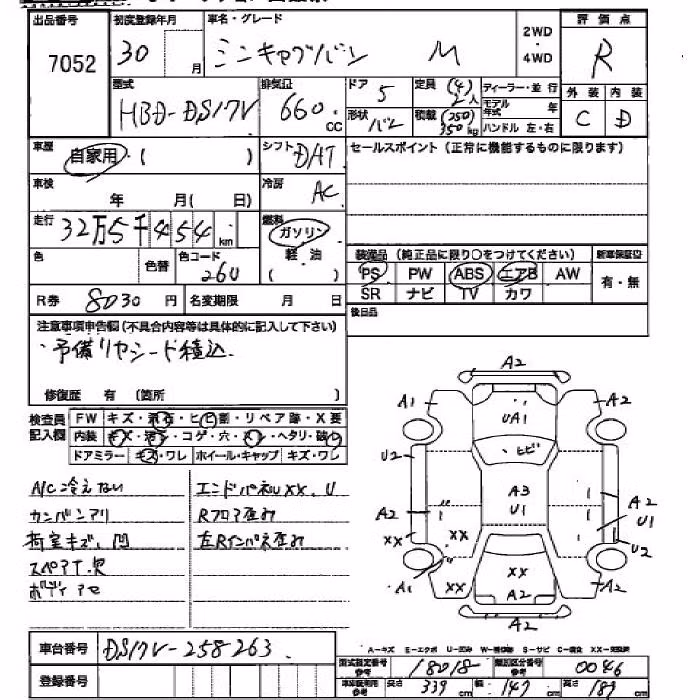 出品番号 初度登録年月 車名・グレード 2WD・4WD 評価点
7052 30 月 ミニキャブバン M R
型式 排気量 ドア 定員 ディーラー・並行 外装 内装
HBD-DS17V 660 CC 5 (4) 2人 モデル年式 年 C D
形状 バン 積載 (250) 350kg ハンドル 左・右
車歴 自家用 ( ) シフト DAT セールスポイント (正常に機能するものに限ります)
車検 年 月( 日) 冷房 AC
走行 32万5千454 km 燃料 ガソリン 軽油 ( )
色 色替 色コード 260
装備品 (純正品に限り○をつけてください) 新車保証書
PS PW ABS エアB AW 有・無
SR ナビ TV カワ
R券 8030円 名変期限 月 日
後日品
注意事項申告欄(不具合内容等は具体的に記入して下さい)
・予備リヤシート積込
修復歴 有 (箇所 )
検査員記入欄 FW キズ・飛石・ヒビ割・リペア跡・X要
内装 キズ・汚レ・コゲ・穴・スレ・ヘタリ・破レ
ドアミラー キズ・ワレ ホイール・キャップ キズ・ワレ
A/C冷えない エンドパネルXX、U
カンバンアリ Rフロア歪み
荷室キズ、凹 左Rインパネ歪み
スペアT欠
ボディアセ
A2
A1 ・、 A2
UA1
、ヒビ
U2 A3
U1
A2 A2
U1
XX XX U2
A1 XX XX A2
A2
A2
A-キズ E-エクボ U-凹み W-補修跡 S-サビ C-腐食 XX-交換済
車台番号 DS17V-258263
登録番号
型式指定番号 参考 18018 類別区分番号 参考 0046
車庫証明用 参考 長さ 339 cm 幅 147 cm 高さ 189 cm